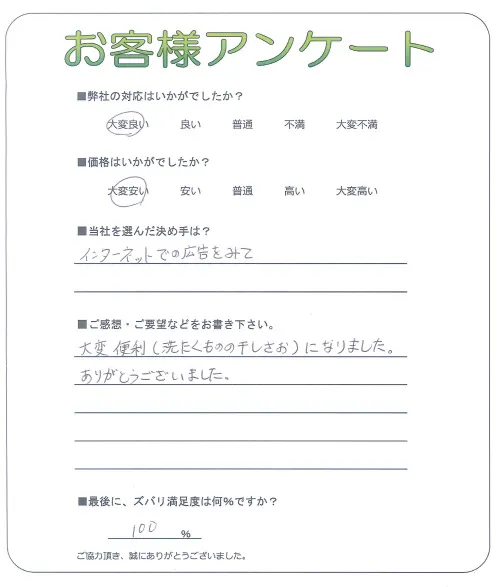 お客様アンケート
■弊社の対応はいかがでしたか？
大変良い 良い 普通 不満 大変不満
■価格はいかがでしたか？
大変安い 安い 普通 高い 大変高い
■当社を選んだ決め手は？
インターネットでの広告をみて
■ご感想・ご要望などをお書き下さい。
大変便利(洗たくものの干しさお)になりました。
ありがとうございました、
■最後に、ズバリ満足度は何%ですか？
100 %
ご協力頂き、誠にありがとうございました。